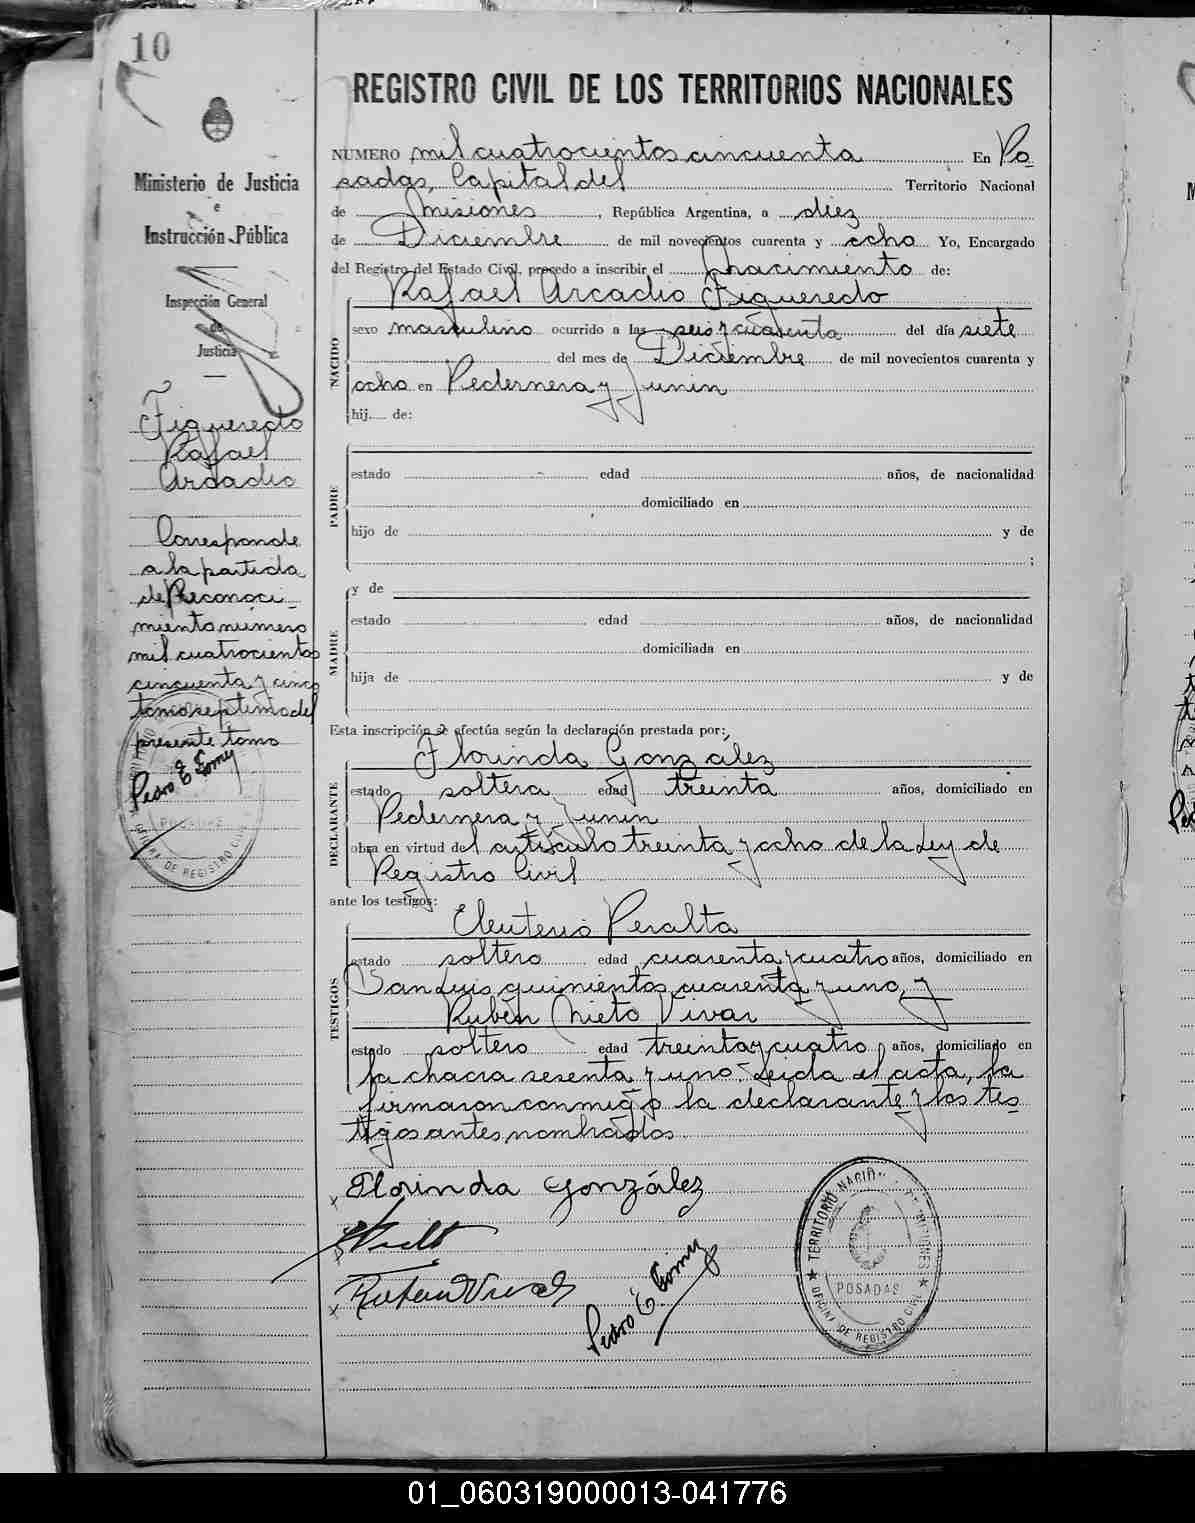 10
Ministerio de Justicia
e
Instrucción Pública
Inspección General
de
Justicia
Figueredo
Rafael
Arcadio
Corresponde
a la partida
de Reconoci-
miento número
mil cuatrocientos
cincuenta y cinco
tomo septimo del
presente tomo
Pedro E Gomez
POSADAS
OFICINA DE REGISTRO CIVIL
REGISTRO CIVIL DE LOS TERRITORIOS NACIONALES
NUMERO mil cuatrocientos cincuenta En Po-
sadas, Capital del Territorio Nacional
de Misiones, República Argentina, a diez
de Diciembre de mil novecientos cuarenta y ocho Yo, Encargado
del Registro del Estado Civil, procedo a inscribir el nacimiento de:
Rafael Arcadio Figueredo
NACIDO
sexo masculino ocurrido a las seis y cuarenta del día siete
del mes de Diciembre de mil novecientos cuarenta y
ocho en Pedernera y Junin
hij.... de:
PADRE
estado edad años, de nacionalidad
domiciliado en
hijo de y de
;
MADRE
y de
estado edad años, de nacionalidad
domiciliada en
hija de y de
Esta inscripción se efectúa según la declaración prestada por:
Florinda Gonzalez
DECLARANTE
estado soltera edad treinta años, domiciliado en
Pedernera y Junin
obra en virtud del artículo treinta y ocho de la Ley de
Registro Civil
ante los testigos:
TESTIGOS
Eleuterio Peralta
estado soltero edad cuarenta y cuatro años, domiciliado en
San Luis quinientos cuarenta y uno, y
Rubén Nieto Vivar
estado soltero edad treinta y cuatro años, domiciliado en
la chacra sesenta y uno. Leida el acta, la
firmaron conmigo la declarante y los tes-
tigos antes nombrados
Florinda González
Pedro E. Gomez
TERRITORIO NACIONAL DE MISIONES
POSADAS
OFICINA DE REGISTRO CIVIL
01_060319000013-041776